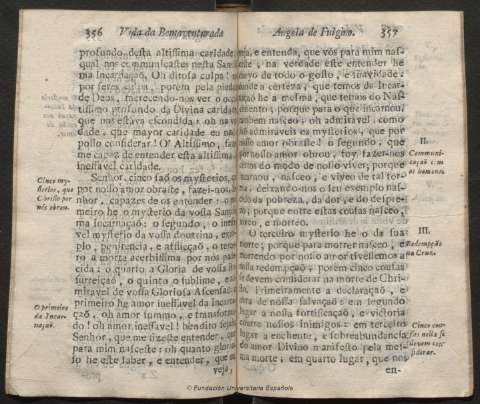 356 Vida da Bemaventurada
profundo desta altissima caridade
qual nos communicastes nesta San
ma Incarnaçaõ. Oh ditosa culpa!
por seres culpa, porém pela pieda
de Deos, merecendo-nos ver o occ
tissimo profundo da Divina carida
que nos estava escondida: oh na v
dade, que mayor caridade eu na
posso considerar! O' Altissimo, faz
me capaz de entender esta altissima
ineffavel caridade.
Senhor, cinco saõ os mysterios, q
por nosso amor obraste, fazei-nos,
nhor, capazes de os entender: o
meiro he o mysterio da vossa Sant
ma Incarnaçaõ; o segundo, o ine
vel mysterio da vossa doutrina, ex
plo, penitencia, e afflicçaõ, o ter
ro a morte acerbissima por nós pa
cida: o quarto a Gloria de vossa
surreiçaõ, o quinto o sublime, e
miravel de vossa Gloriosa Ascensaõ
primeiro he amor ineffavel da Incar
çaõ, oh amor summo, e transform
do! oh amor ineffavel! bendito sejais
Senhor, que me fizeste entender, que
para mim nasceste: oh quanto glorio
so he este saber, e entender, que eu
veja,
Cinco my-
sterios, que
Christo por
nós obrou.
O primeiro
da Incar-
naçaõ.
Angela de Fulgino. 357
veja, e entenda, que vós para mim nas-
ceste, na verdade este entender he
cheyo de todo o gosto, e suavidade,
onde a certeza, que temos da Incar-
naçaõ he a mesma, que temos do Nas-
cimento; porque para o que incarnou,
tambem nasceo: oh admiravel, como
saõ admiraveis ea mysterios, que por
nosso amor obraste! o segundo, que
por nosso amor obrou, foy fazer-nos
certos do modo de nosso viver; porque
incarnou, nasceo, e viveo de tal for-
ma, deixando-nos o seu exemplo nas-
cido da pobreza, da dor, e do despre-
zo; porque entre estas cousas nasceo,
viveo, e morreo.
O terceiro mysterio he o da sua
morte; porque para morrer nasceo, e
morrendo por nosso amor tivessemos a
nossa redempçaõ; porém cinco cousas
se devem considerar na morte de Chri-
sto. Primeiramente a declaraçaõ, e
de nossa salvaçaõ: em segundo
lugar a nossa fortificaçaõ, e victoria
contra nossos inimigos: em terceiro
lugar a enchente, e sobreabundancia
do amor Divino manifesto pela mes-
ma morte; em quarto lugar, que nos
en-
II.
Communi-
caçaõ com
os homens.
III.
Redempçaõ
na Cruz.
Cinco cou-
sas nella se
devem con-
siderar.
© Fundación Universitaria Española